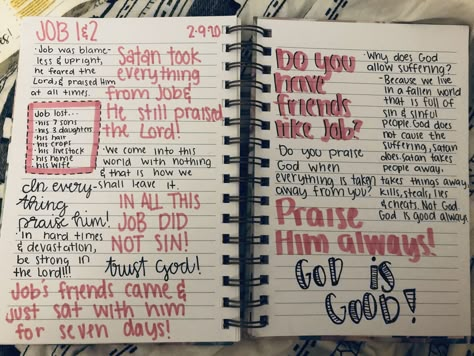 JOB 1&2
2-9-20
· Job was blame-
less & upright,
he feared the
Lord, & praised Him
at all times.
Satan took
everything
from Job &
He still praised
the Lord!
Job lost...
· his 7 sons
· his 3 daughters
· his hair
· his crops
· his livestock
· his home
· his wife
· We come into this
world with nothing
& that is how we
shall leave it.
In every-
thing
praise him!
· In hard times
& devastation,
be strong in
the Lord!!!
IN ALL THIS
JOB DID
NOT SIN!
trust God!
Job's friends came &
just sat with him
for seven days!
Do you
have
friends
like Job?
· Why does God
allow suffering?
- Because we live
in a fallen world
that is full of
sin & sinful
people. God does
not cause the
suffering, Satan
does. Satan takes
people away,
takes things away,
kills, steals, lies
& cheats. Not God
God is good always.
Do you praise
God when
everything is taken
away from you?
Praise
Him always!
GOD is
GOOD!